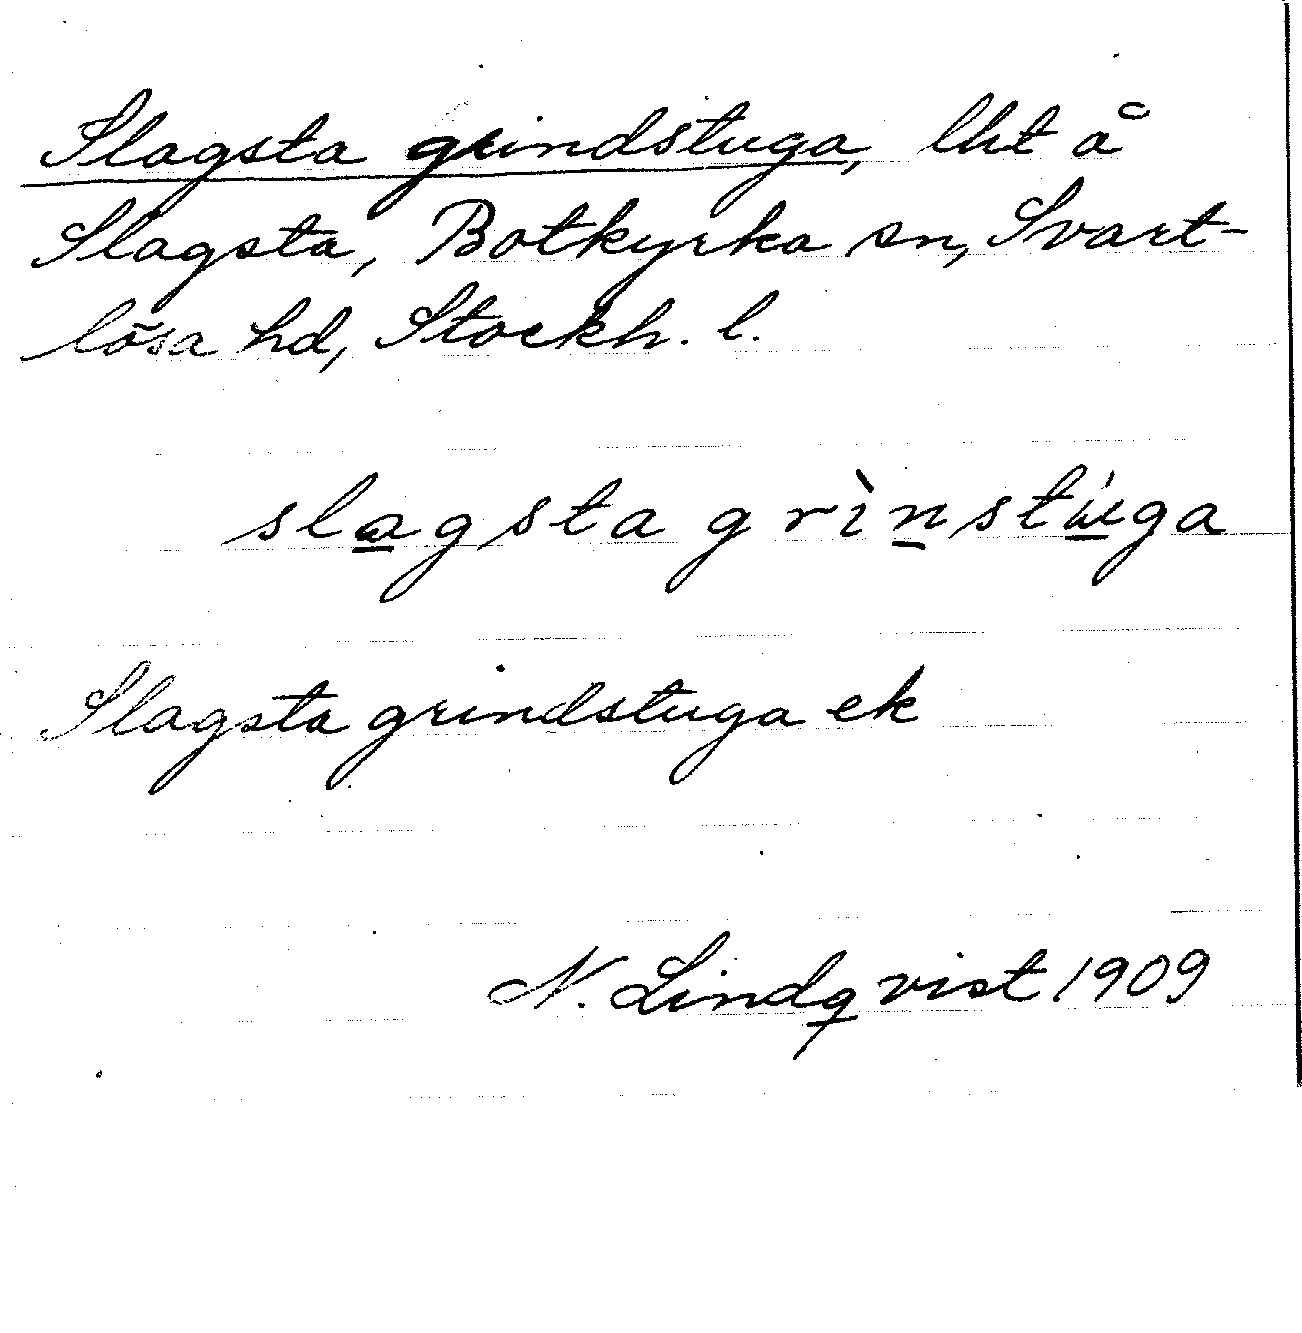 Slagsta grindstuga, lht å
Slagsta, Botkyrka sn, Svart-
lösa hd, Stockh. l.
slagsta grìnstúga
Slagsta grindstuga ek
N. Lindqvist 1909